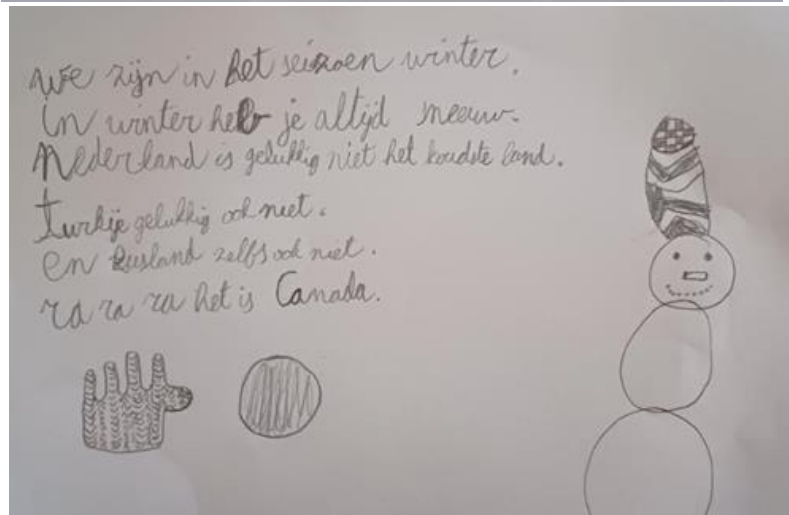 We zijn in het seizoen winter.
in winter heb je altijd sneeuw.
Nederland is gelukkig niet het koudste land.
Turkije gelukkig ook niet.
en Rusland zelfs ook niet.
ra ra ra het is Canada.